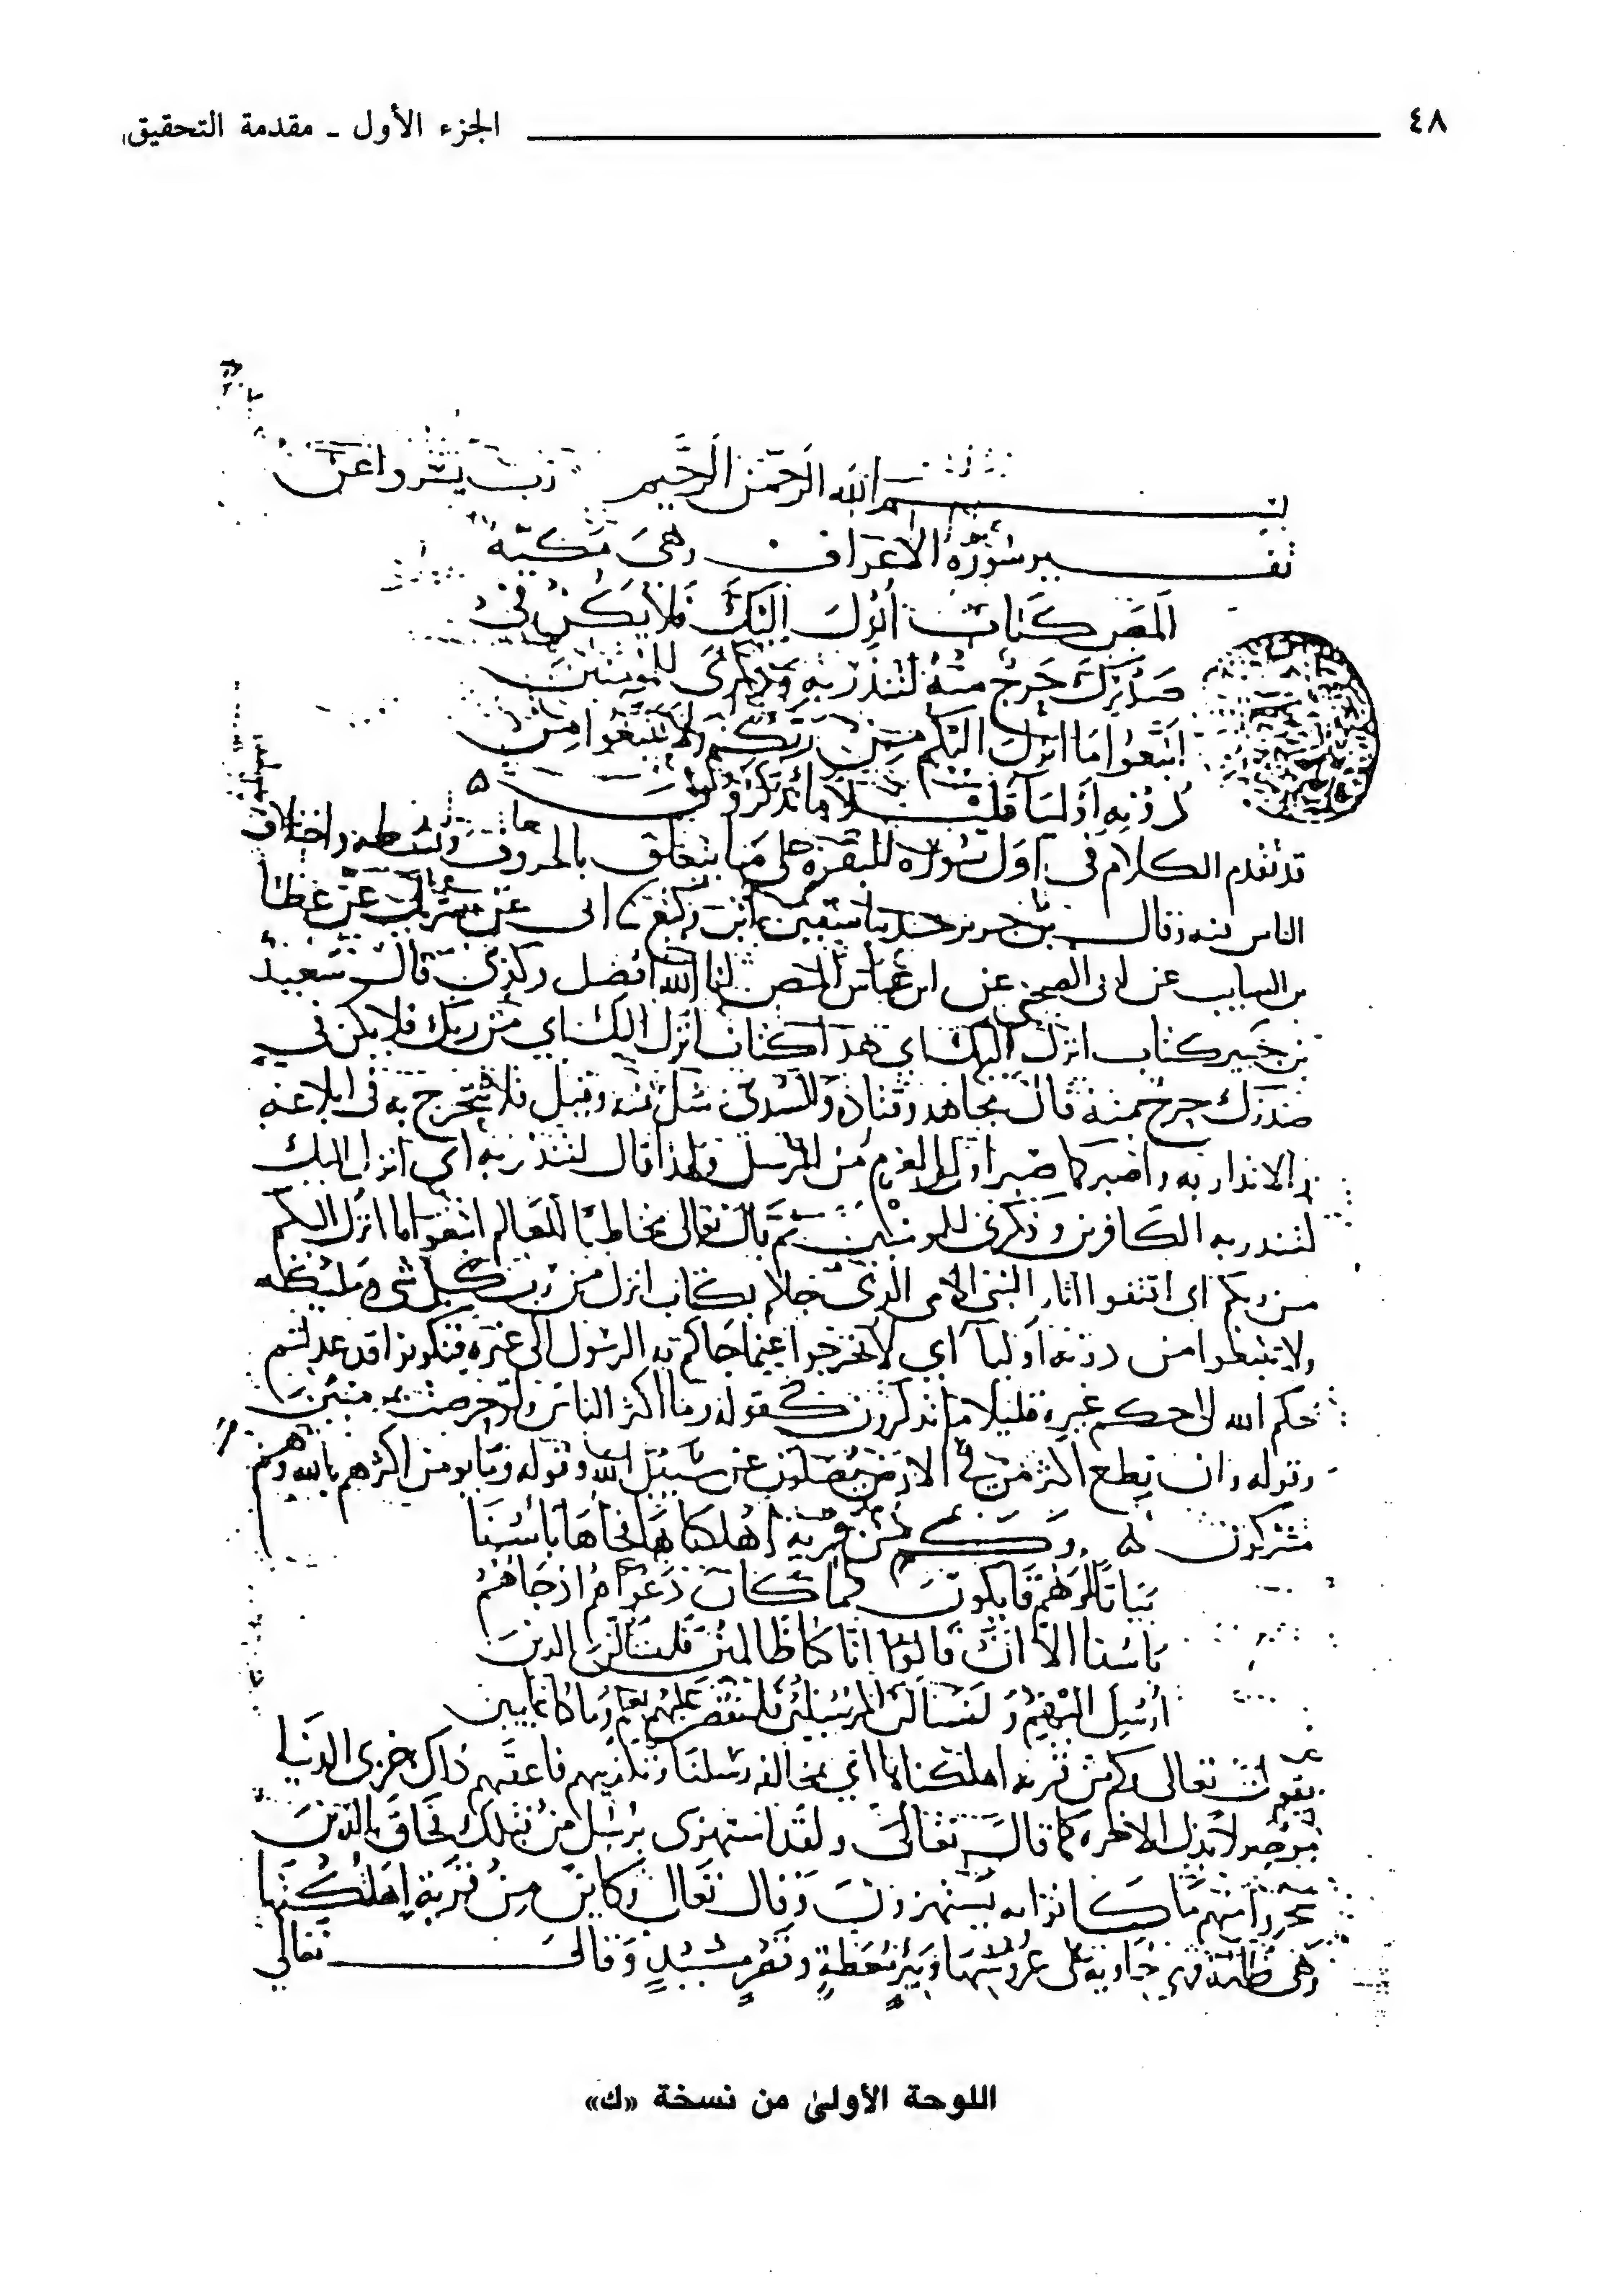 ٤٨ الجزء الأول ـ مقدمة التحقيق
بسم الله الرحمن الرحيم رب يسر واعن
تفسير سورة الاعراف وهي مكية
المص كتاب انزل اليك فلا يكن في
صدرك حرج منه لتنذر به وذكرى للمومنين
اتبعوا ما انزل اليكم من ربكم ولا تتبعوا من
دونه اوليا قليلا ما تذكرون
قد تقدم الكلام في اول سورة البقرة على ما يتعلق بالحروف وبسطه واختلاف
الناس فيه وقال بن جرير حدثنا سفين ابن وكيع ابى عن شريك عن عطا
بن السايب عن ابى الضحى عن ابن عباس المص انا الله افصل وكذى قال سعيد
بن جبير كتاب انزل اليك اى هذا كتاب انزل اليك اي من ربك فلا يكن في
صدرك حرج منه قال مجاهد وقتادة والسدى شك منه وقيل فلا تتحرج به فى ابلاغه
والانذار به واصبر كما صبر اولوا العزم من الرسل ولهذا قال لتنذر به اي انزل اليك
لتنذر به الكافرين وذكرى للمومنين ثم قال تعالى مخاطبا للعالم اتبعوا ما انزل اليكم
من ربكم اى اقتفوا اثار النبى الامى الذى جاكم بكتاب انزل من رب كل شى ومليكه
ولا تتبعوا من دونه اوليا اي لا تخرجوا عنما جاكم به الرسول الى غيره فتكونوا قد عدلتم
حكم الله الى حكم غيره قليلا ما تذكرون كقوله وما اكثر الناس ولو حرصت بمومنين
وقوله وان تطع اكثر من في الارض يضلوك عن سبيل الله وقوله وما يومن اكثرهم بالله وهم
مشركون وكم من قرية اهلكناها فجاها باسنا
بياتا او هم قايلون فما كان دعواهم اذ جاهم
باسنا الا ان قالوا انا كنا ظالمين فلنسالن الذين
ارسل اليهم ولنسالن المرسلين فلنقصن عليهم بعلم وما كنا غايبين
يقول تعالى وكم من قرية اهلكناها اي بمخالفة رسلنا وتكذيبهم فاعقبهم ذلك خزى الدنيا
موصولا بذل الاخره كما قال تعالى ولقد استهزى برسل من قبلك فحاق بالذين
سخروا منهم ما كانوا به يستهزون وقال تعالى وكاين من قرية اهلكتها
وهي ظالمة فهي خاوية على عروشها وبير معطلة وقصر مشيد وقال تعالى
اللوحة الأولىٰ من نسخة «ك»